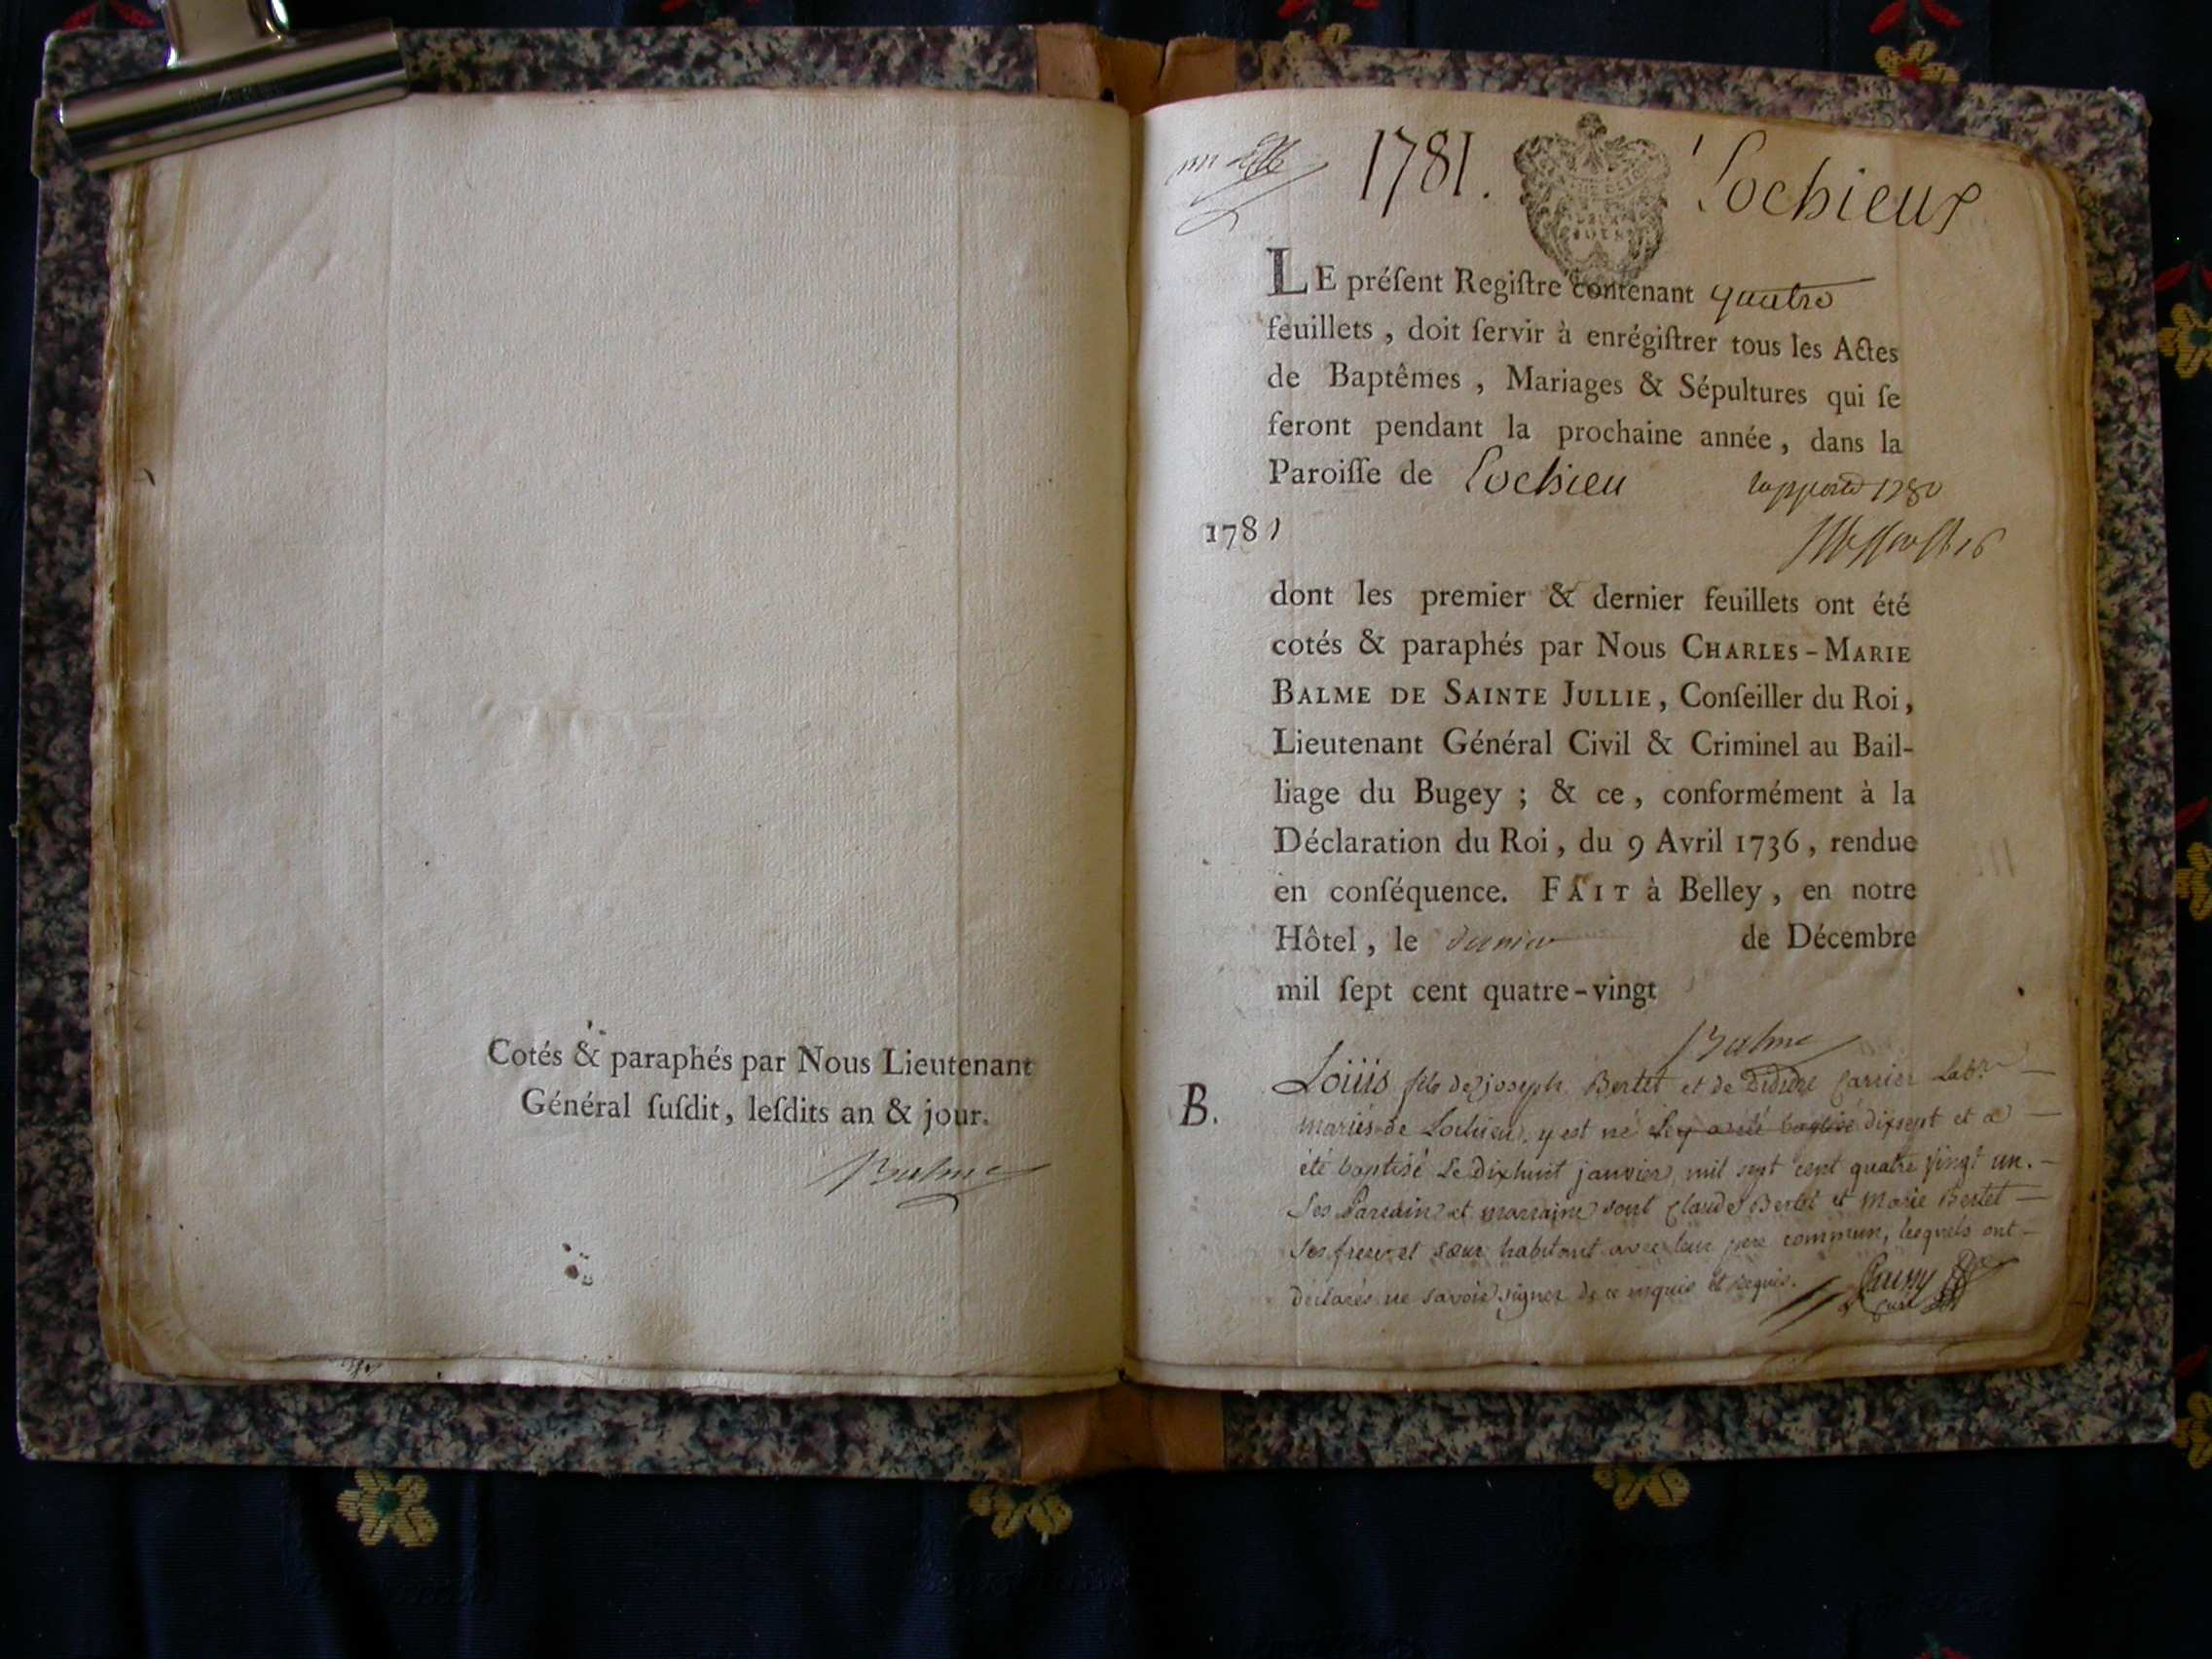 Cotés & paraphés par Nous Lieutenant
Général ſuſdit, leſdits an & jour.
Balme
1781. Lochieux
LE préſent Regiſtre contenant quatre
feuillets, doit ſervir à enrégiſtrer tous les Actes
de Baptêmes, Mariages & Sépultures qui ſe
feront pendant la prochaine année, dans la
Paroiſſe de Lochieu
1781
dont les premier & dernier feuillets ont été
cotés & paraphés par Nous CHARLES-MARIE
BALME DE SAINTE JULLIE, Conſeiller du Roi,
Lieutenant Général Civil & Criminel au Bail-
liage du Bugey; & ce, conformément à la
Déclaration du Roi, du 9 Avril 1736, rendue
en conſéquence. FAIT à Belley, en notre
Hôtel, le dernier de Décembre
mil ſept cent quatre-vingt
Balme
B. Loüis fils de joseph Bertet et de Didière Carrier Labrs
mariés de Lochieu, y est né le y a été baptisé dixsept et a
été baptisé Le Dixhuit janvier mil sept cent quatre vingt un.
Ses Parrain et marraine sont Claude Bertet et Marie Bertet
ses frere et sœur habitant avec leur pere commun, lesquels ont
déclarés ne savoir signer de ce enquis et requis.
curé